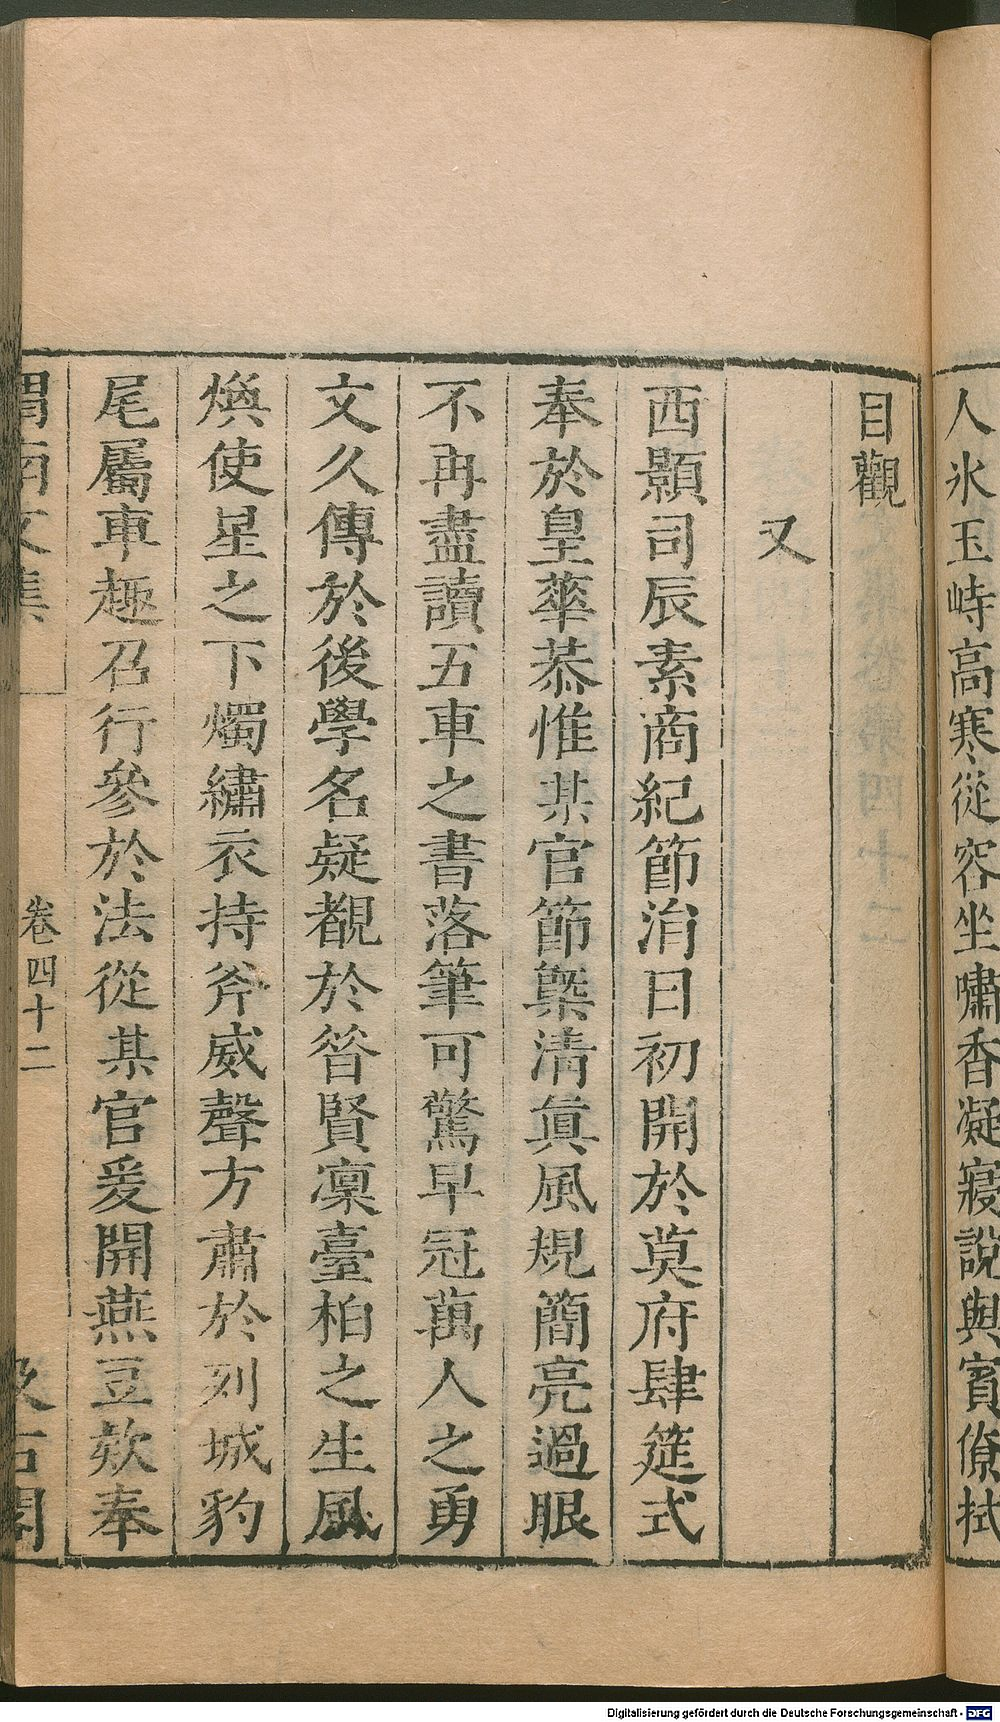 人氷玉峙高寒從容坐嘯香凝寢說與賓僚拭
目觀
又
西顥司辰素商紀節涓日初開於莫府肆筵式
奉於皇華恭惟某官節槩清眞風規簡亮過眼
不再盡讀五車之書落筆可驚早冠萬人之勇
文久傳於後學名疑覩於昝賢凜臺柏之生風
煥使星之下燭繡衣持斧威聲方肅於列城豹
尾屬車趣召行參於法從某官爰開燕豆欸奉
渭南文集
卷四十二
汲古閣
Digitalisierung gefördert durch die Deutsche Forschungsgemeinschaft - DFG